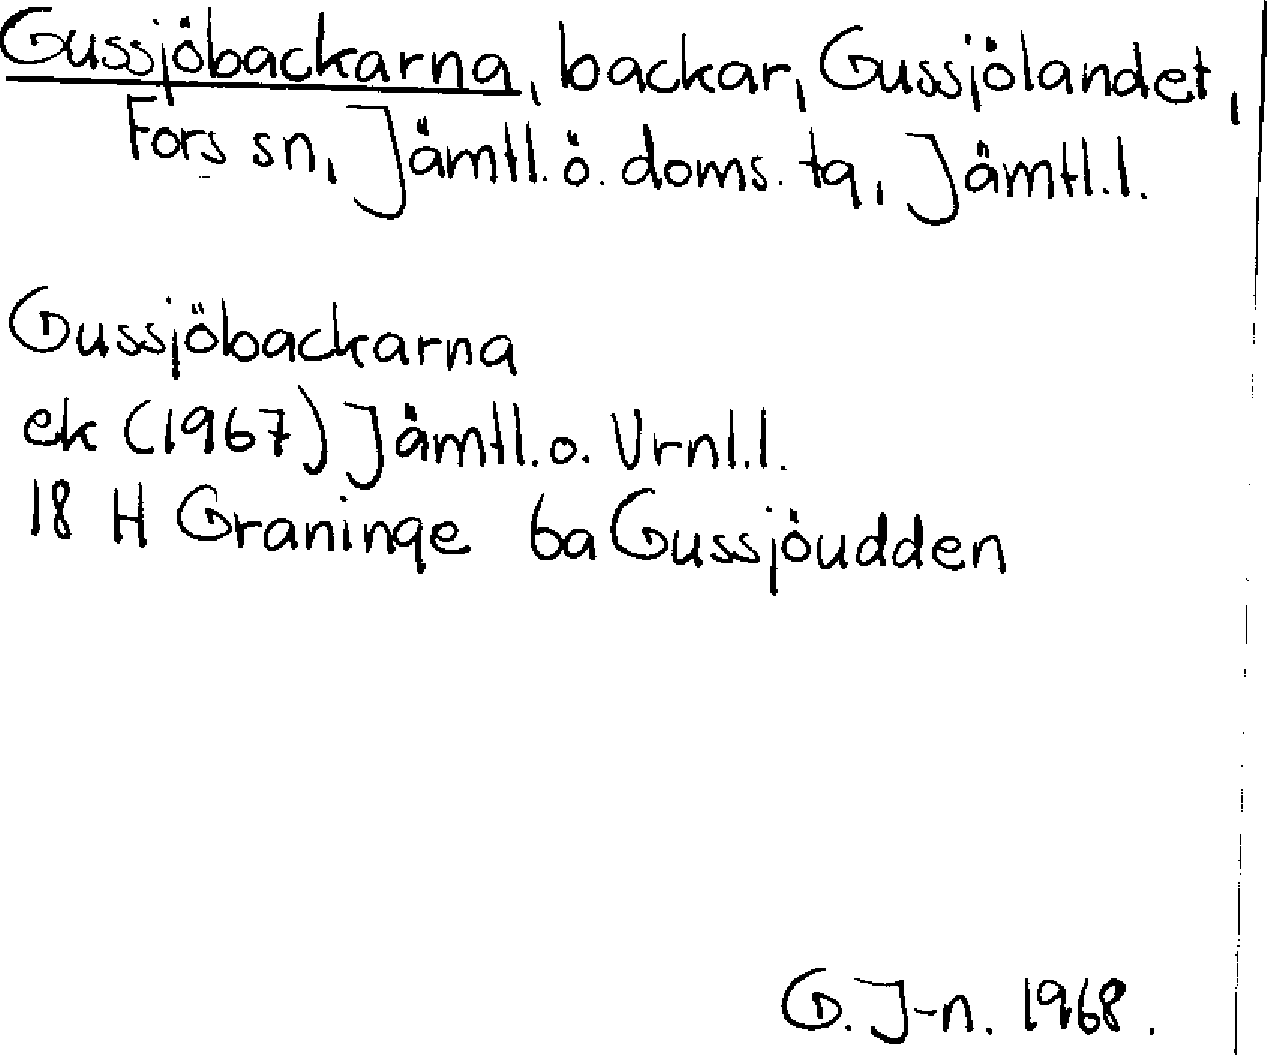 Gussjöbackarna, backar, Gussjölandet,
Fors sn, Jämtl. ö. doms. tg, Jämtl. l.
Gussjöbackarna
ek (1967) Jämtl. o. Vrnl. l.
18 H Graninge 6a Gussjöudden
G. J-n. 1968.